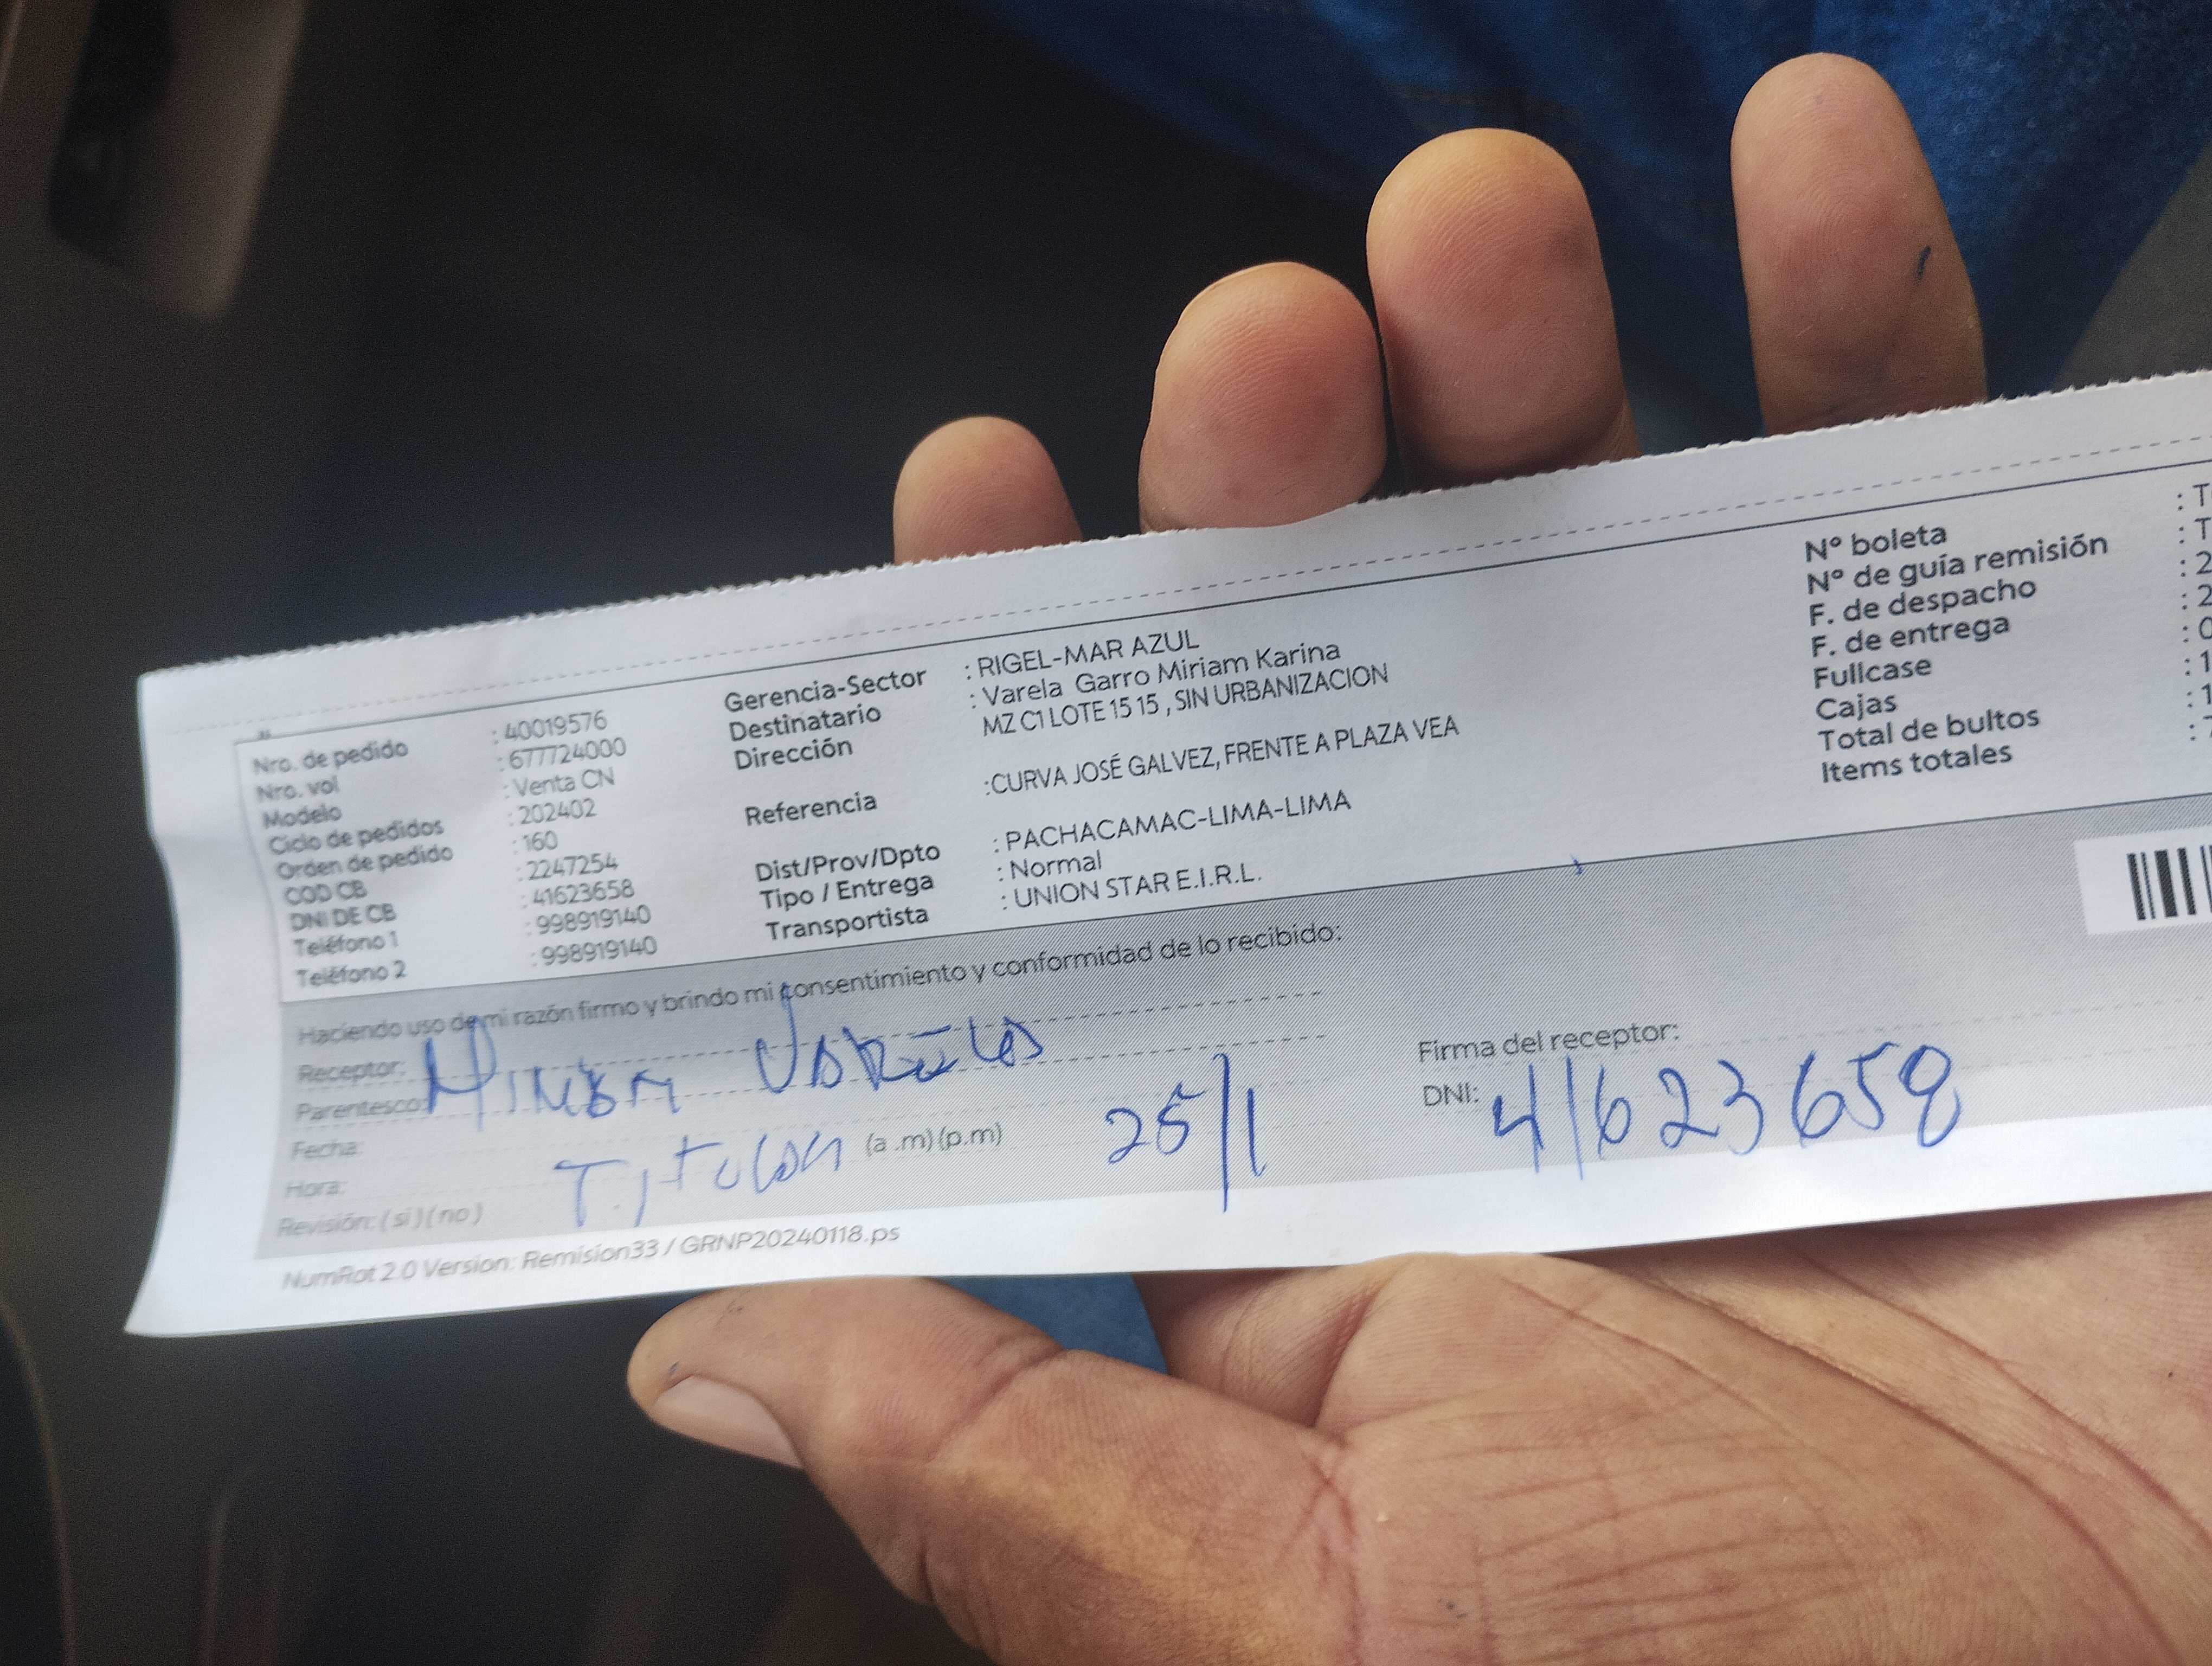 Nro. de pedido : 40019576
Nro. vol : 677724000
Modelo : Venta CN
Ciclo de pedidos : 202402
Orden de pedido : 160
COD CB : 2247254
DNI DE CB : 41623658
Teléfono 1 : 998919140
Teléfono 2 : 998919140
Gerencia-Sector : RIGEL-MAR AZUL
Destinatario : Varela Garro Miriam Karina
Dirección MZ C1 LOTE 15 15 , SIN URBANIZACION
Referencia :CURVA JOSÉ GALVEZ, FRENTE A PLAZA VEA
Dist/Prov/Dpto : PACHACAMAC-LIMA-LIMA
Tipo / Entrega : Normal
Transportista : UNION STAR E.I.R.L.
Nº boleta : T
Nº de guía remisión : T
F. de despacho : 2
F. de entrega : 2
Fullcase : 0
Cajas : 1
Total de bultos : 1
Items totales :
Haciendo uso de mi razón firmo y brindo mi consentimiento y conformidad de lo recibido:
Receptor:
Parentesco:
Fecha:
Hora: (a .m) (p.m) 25/1
Revisión: ( si ) ( no )
Firma del receptor:
DNI: 41623658
NumRot 2.0 Version: Remision33 / GRNP20240118.ps